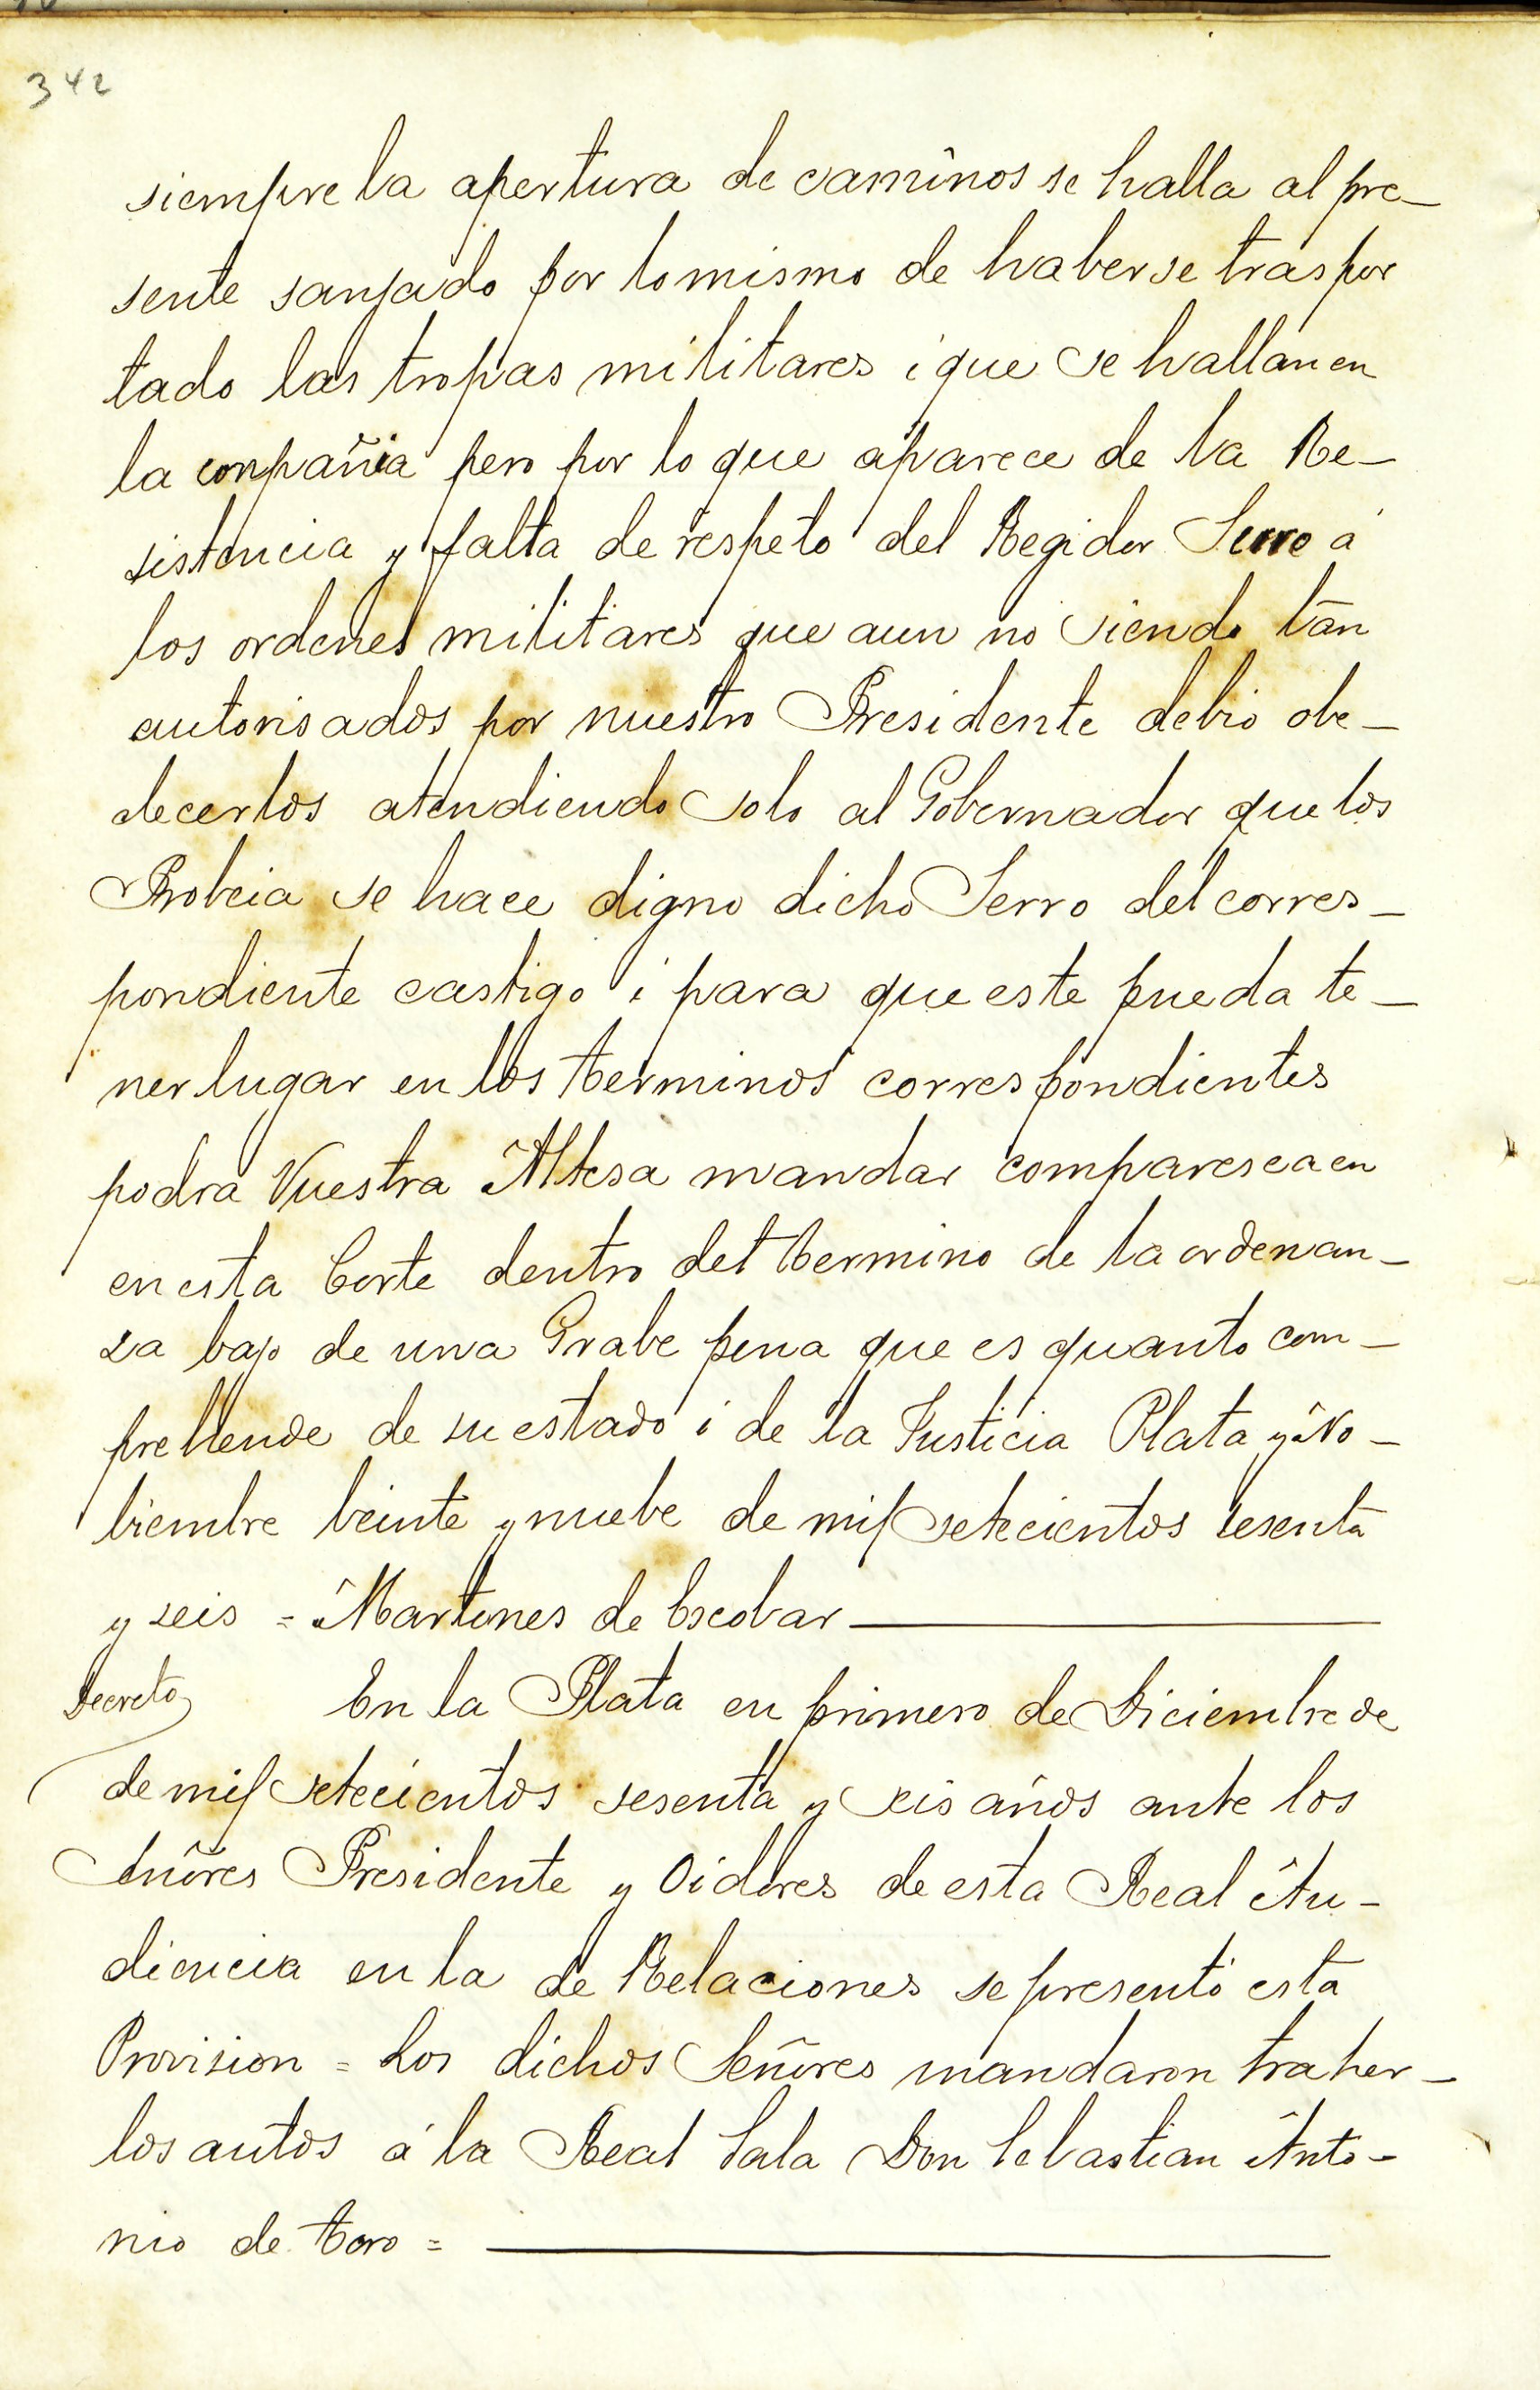 342
siempre la apertura de caminos se halla al pre_
sente sanjado por lo mismo de haberse traspor
tado las tropas militares i que se hallan en
la conpañia pero por lo que aparece de la Re_
sistencia y falta de respeto del Regidor Serro á
los ordenes militares que aun no siendo tan
autorisados por nuestro Presidente debio obe_
decerlos atendiendo solo al Gobernador que los
Probeia se hace digno dicho Serro del corres_
pondiente castigo i para que este pueda te_
ner lugar en los terminos correspondientes
podra Vuestra Altesa mandar comparesca en
en esta Corte dentro del termino de la ordenan_
za bajo de una Grabe pena que es quanto com_
prehende de su estado i de la Justicia Plata y No_
biembre beinte y nuebe de mil setecientos sesenta
y seis = Martines de Escobar
Decreto En la Plata en primero de Diciembre de
de mil setecientos sesenta y seis años ante los
Señores Presidente y Oidores de esta Real Au_
diencia en la de Relaciones se presentó esta
Provision = Los dichos Señores mandaron traher_
los autos á la Real Sala Don Sebastian Anto_
nio de toro =